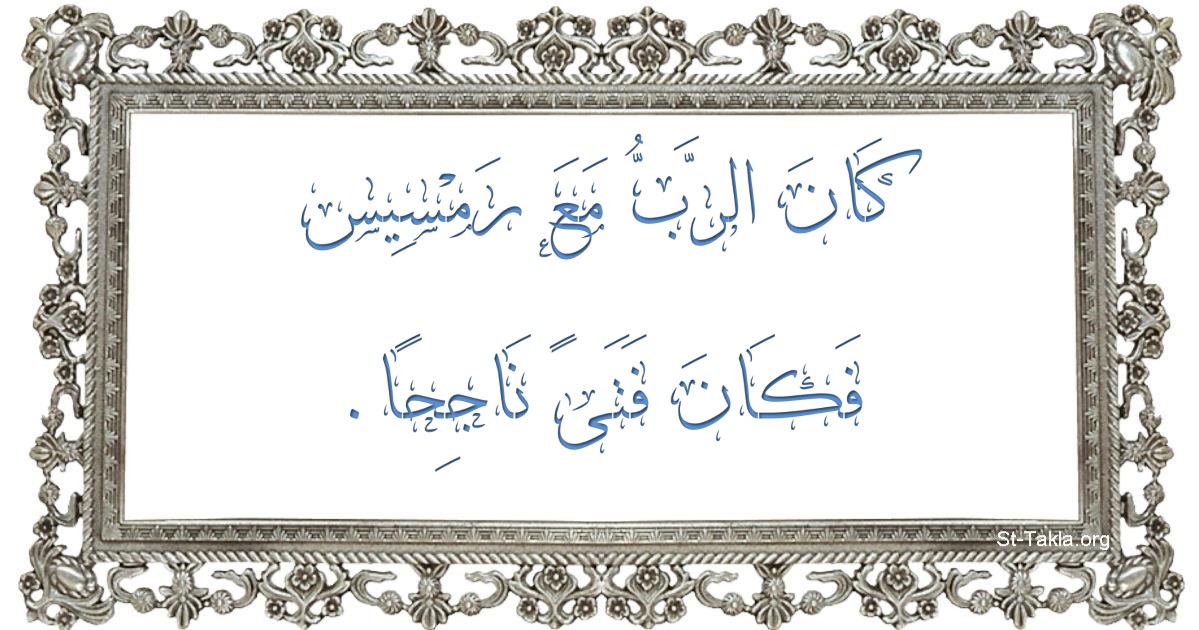 كَانَ الرَّبُّ مَعَ رَمْسِيِس
فَكَانَ فَتَىً نَاجِحًا .
St-Takla.org